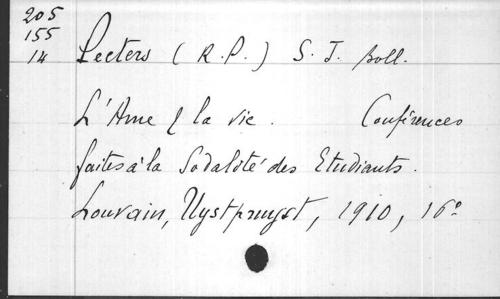 205
155
14
Peeters (R.P.) S.J. Boll.
L'Ame & la vie. Conférences
faites à la Sodalité des Etudiants.
Louvain, Uystpruyst, 1910, 16º